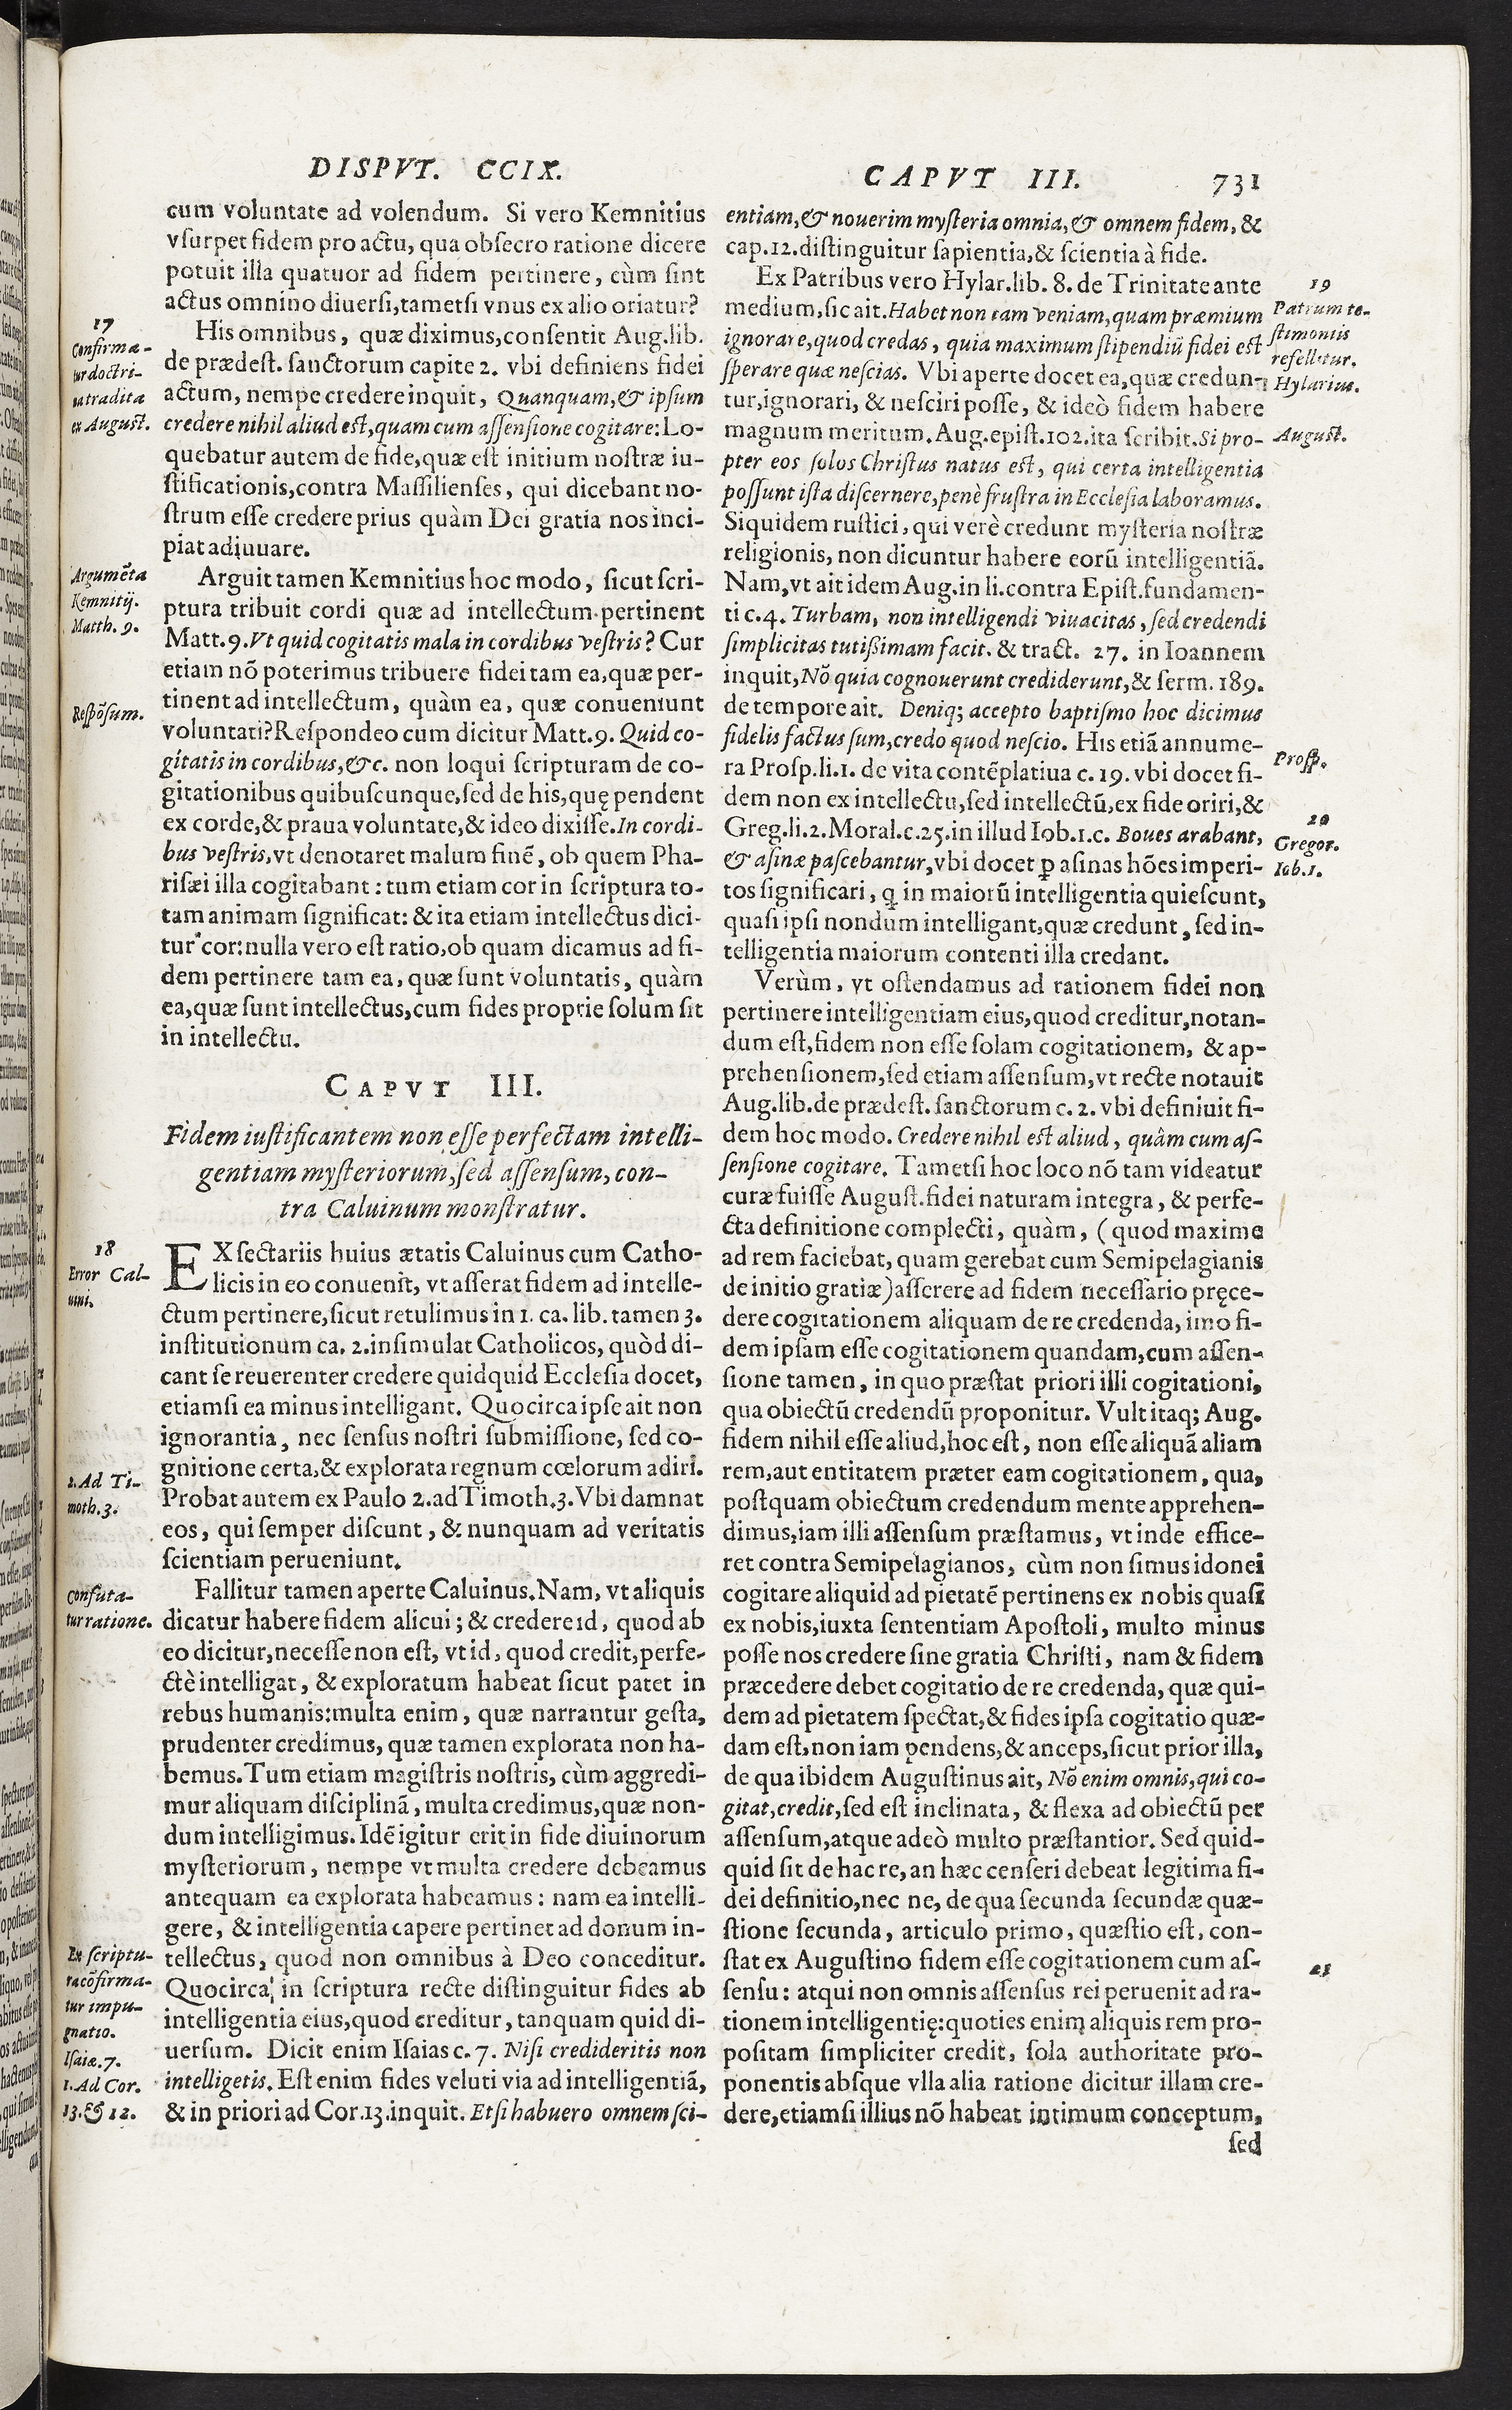 DISPVT. CCIX.
cum voluntate ad volendum. Si vero Kemnitius
vſurpet fidem pro actu, qua obſecro ratione dicere
potuit illa quatuor ad fidem pertinere, cùm ſint
actus omnino diuerſi, tametſi vnus ex alio oriatur?
17
Confirma-
tur doctri-
na tradita
ex Auguſt.
His omnibus, quæ diximus, conſentit Aug. lib.
de prædeſt. ſanctorum capite 2. vbi definiens fidei
actum, nempe credere inquit, Quanquam, & ipſum
credere nihil aliud eſt, quam cum aſſenſione cogitare: Lo-
quebatur autem de fide, quæ eſt initium noſtræ iu-
ſtificationis, contra Maſſilienſes, qui dicebant no-
ſtrum eſſe credere prius quàm Dei gratia nos inci-
piat adiuuare.
Argumẽta
Kemnitij.
Matth. 9.
Arguit tamen Kemnitius hoc modo, ſicut ſcri-
ptura tribuit cordi quæ ad intellectum pertinent
Matt. 9. Vt quid cogitatis mala in cordibus veſtris? Cur
etiam nõ poterimus tribuere fidei tam ea, quæ per-
tinent ad intellectum, quàm ea, quæ conueniunt
Reſpõſum.
voluntati? Reſpondeo cum dicitur Matt. 9. Quid co-
gitatis in cordibus, &c. non loqui ſcripturam de co-
gitationibus quibuſcunque, ſed de his, quę pendent
ex corde, & praua voluntate, & ideo dixiſſe. In cordi-
bus veſtris, vt denotaret malum finẽ, ob quem Pha-
riſæi illa cogitabant: tum etiam cor in ſcriptura to-
tam animam ſignificat: & ita etiam intellectus dici-
tur cor: nulla vero eſt ratio, ob quam dicamus ad fi-
dem pertinere tam ea, quæ ſunt voluntatis, quàm
ea, quæ ſunt intellectus, cum fides proprie ſolum ſit
in intellectu.
CAPVT III.
Fidem iuſtificantem non eſſe perfectam intelli-
gentiam myſteriorum, ſed aſſenſum, con-
tra Caluinum monſtratur.
18
Error Cal-
uini.
EX ſectariis huius ætatis Caluinus cum Catho-
licis in eo conuenit, vt aſſerat fidem ad intelle-
ctum pertinere, ſicut retulimus in 1. ca. lib. tamen 3.
inſtitutionum ca. 2. inſimulat Catholicos, quòd di-
cant ſe reuerenter credere quidquid Eccleſia docet,
etiamſi ea minus intelligant. Quocirca ipſe ait non
ignorantia, nec ſenſus noſtri ſubmiſſione, ſed co-
gnitione certa, & explorata regnum cœlorum adiri.
2. Ad Ti-
moth. 3.
Probat autem ex Paulo 2. ad Timoth. 3. Vbi damnat
eos, qui ſemper diſcunt, & nunquam ad veritatis
ſcientiam perueniunt.
Confuta-
tur ratione.
Fallitur tamen aperte Caluinus. Nam, vt aliquis
dicatur habere fidem alicui; & credere id, quod ab
eo dicitur, neceſſe non eſt, vt id, quod credit, perfe-
ctè intelligat, & exploratum habeat ſicut patet in
rebus humanis: multa enim, quæ narrantur geſta,
prudenter credimus, quæ tamen explorata non ha-
bemus. Tum etiam magiſtris noſtris, cùm aggredi-
mur aliquam diſciplinã, multa credimus, quæ non-
dum intelligimus. Idẽ igitur erit in fide diuinorum
myſteriorum, nempe vt multa credere debeamus
antequam ea explorata habeamus: nam ea intelli-
gere, & intelligentia capere pertinet ad donum in-
tellectus, quod non omnibus à Deo conceditur.
Ex ſcriptu-
ra cõfirma-
tur impu-
gnatio.
Iſaiæ. 7.
1. Ad Cor.
13. & 12.
Quocirca in ſcriptura recte diſtinguitur fides ab
intelligentia eius, quod creditur, tanquam quid di-
uerſum. Dicit enim Iſaias c. 7. Niſi credideritis non
intelligetis. Eſt enim fides veluti via ad intelligentiã,
& in priori ad Cor. 13. inquit. Etſi habuero omnem ſci-
CAPVT III.
731
entiam, & nouerim myſteria omnia, & omnem fidem, &
cap. 12. diſtinguitur ſapientia, & ſcientia à fide.
19
Patrum te-
ſtimoniis
refellitur.
Hylarius.
Ex Patribus vero Hylar. lib. 8. de Trinitate ante
medium, ſic ait. Habet non tam veniam, quam præmium
ignorare, quod credas, quia maximum ſtipendiũ fidei eſt
ſperare quæ neſcias. Vbi aperte docet ea, quæ credun-
tur, ignorari, & neſciri poſſe, & ideò fidem habere
Auguſt.
magnum meritum. Aug. epiſt. 102. ita ſcribit. Si pro-
pter eos ſolos Chriſtus natus eſt, qui certa intelligentia
poſſunt iſta diſcernere, penè fruſtra in Eccleſia laboramus.
Siquidem ruſtici, qui verè credunt myſteria noſtræ
religionis, non dicuntur habere eorũ intelligentiã.
Nam, vt ait idem Aug. in li. contra Epiſt. fundamen-
ti c. 4. Turbam, non intelligendi viuacitas, ſed credendi
ſimplicitas tutiſſimam facit. & tract. 27. in Ioannem
inquit, Nõ quia cognouerunt crediderunt, & ſerm. 189.
de tempore ait. Deniq; accepto baptiſmo hoc dicimus
fidelis factus ſum, credo quod neſcio. His etiã annume-
Proſp.
ra Proſp. li. 1. de vita contẽplatiua c. 19. vbi docet fi-
dem non ex intellectu, ſed intellectũ, ex fide oriri, &
20
Gregor.
Iob. 1.
Greg. li. 2. Moral. c. 25. in illud Iob. 1. c. Boues arabant,
& aſinæ paſcebantur, vbi docet ꝑ aſinas hões imperi-
tos ſignificari, q in maiorũ intelligentia quieſcunt,
quaſi ipſi nondum intelligant, quæ credunt, ſed in-
telligentia maiorum contenti illa credant.
Verùm, vt oſtendamus ad rationem fidei non
pertinere intelligentiam eius, quod creditur, notan-
dum eſt, fidem non eſſe ſolam cogitationem, & ap-
prehenſionem, ſed etiam aſſenſum, vt recte notauit
Aug. lib. de prædeſt. ſanctorum c. 2. vbi definiuit fi-
dem hoc modo. Credere nihil eſt aliud, quàm cum aſ-
ſenſione cogitare. Tametſi hoc loco nõ tam videatur
curæ fuiſſe Auguſt. fidei naturam integra, & perfe-
cta definitione complecti, quàm, (quod maxime
ad rem faciebat, quam gerebat cum Semipelagianis
de initio gratiæ) aſſerere ad fidem neceſſario pręce-
dere cogitationem aliquam de re credenda, imo fi-
dem ipſam eſſe cogitationem quandam, cum aſſen-
ſione tamen, in quo præſtat priori illi cogitationi,
qua obiectũ credendũ proponitur. Vult itaq; Aug.
fidem nihil eſſe aliud, hoc eſt, non eſſe aliquã aliam
rem, aut entitatem præter eam cogitationem, qua,
poſtquam obiectum credendum mente apprehen-
dimus, iam illi aſſenſum præſtamus, vt inde effice-
ret contra Semipelagianos, cùm non ſimus idonei
cogitare aliquid ad pietatẽ pertinens ex nobis quaſi
ex nobis, iuxta ſententiam Apoſtoli, multo minus
poſſe nos credere ſine gratia Chriſti, nam & fidem
præcedere debet cogitatio de re credenda, quæ qui-
dem ad pietatem ſpectat, & fides ipſa cogitatio quæ-
dam eſt, non iam pendens, & anceps, ſicut prior illa,
de qua ibidem Auguſtinus ait, Nõ enim omnis, qui co-
gitat, credit, ſed eſt inclinata, & flexa ad obiectũ per
aſſenſum, atque adeò multo præſtantior. Sed quid-
quid ſit de hac re, an hæc cenſeri debeat legitima fi-
dei definitio, nec ne, de qua ſecunda ſecundæ quæ-
ſtione ſecunda, articulo primo, quæſtio eſt, con-
ſtat ex Auguſtino fidem eſſe cogitationem cum aſ-
21
ſenſu: atqui non omnis aſſenſus rei peruenit ad ra-
tionem intelligentię: quoties enim aliquis rem pro-
poſitam ſimpliciter credit, ſola authoritate pro-
ponentis abſque vlla alia ratione dicitur illam cre-
dere, etiamſi illius nõ habeat intimum conceptum,
ſed